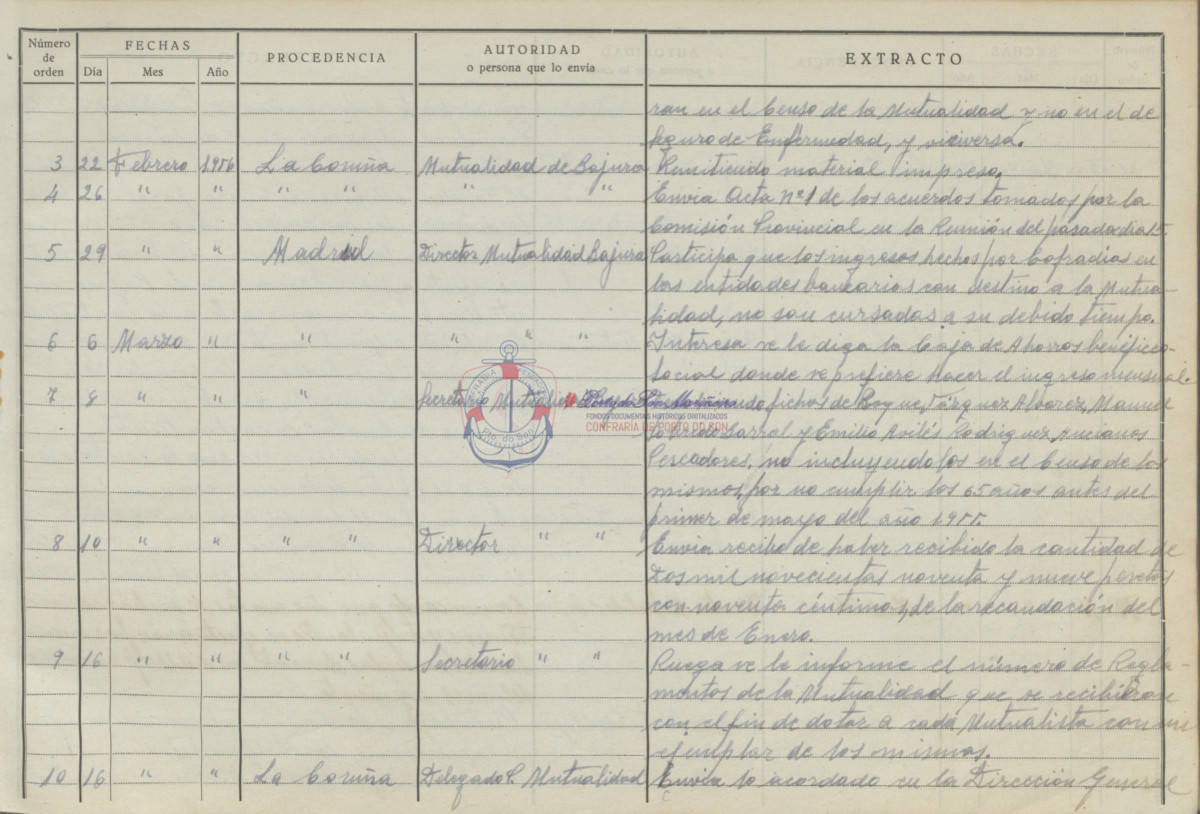 Número de orden FECHAS PROCEDENCIA AUTORIDAD EXTRACTO
Día Mes Año o persona que lo envía
ran en el Censo de la Mutualidad y no en el de
Seguro de Enfermedad, y viciversa.
3 22 Febrero 1956 La Coruña Mutualidad de Bajura Remitiendo material impreso.
4 26 " " " " " " Envia Acta nº 1 de los acuerdos tomados por la
Comisión Provincial en la Reunión del pasado dia
5 29 " " Madrid Director Mutualidad Bajura Participa que los ingresos hechos por Cofradias en
las entidades bancarias con destino a la Mutua-
lidad, no son cursados a su debido tiempo.
6 6 Marzo " " " " " Interesa se le diga la Caja de Ahorros benéfico-
social donde se prefiere hacer el ingreso mensual.
7 8 " " " Secretario fichas de Roque Vázquez Alvarez, Manuel
CONFRARÍA DE PESCADORES
Pto. do Son
FONDOS DOCUMENTAIS HISTÓRICOS DIGITALIZADOS
CONFRARÍA DE PORTO DO SON
y Emilio Avilés Rodriguez, Ancianos
Pescadores, no incluyendolos en el Censo de los
mismos, por no cumplir los 65 años antes del
primer de mayo del año 1955.
8 10 " " " " Director " " Envia recibo de haber recibido la cantidad de
Dos mil novecientas noventa y nueve pesetas
con noventa céntimos, de la recaudación del
mes de Enero.
9 16 " " " " Secretario " " Ruega se le informe el número de Regla-
mentos de la Mutualidad que se recibieron
con el fin de dotar a cada Mutualista con un
ejemplar de los mismos.
10 16 " " La Coruña Delegado P. Mutualidad Envia lo acordado en la Dirección General